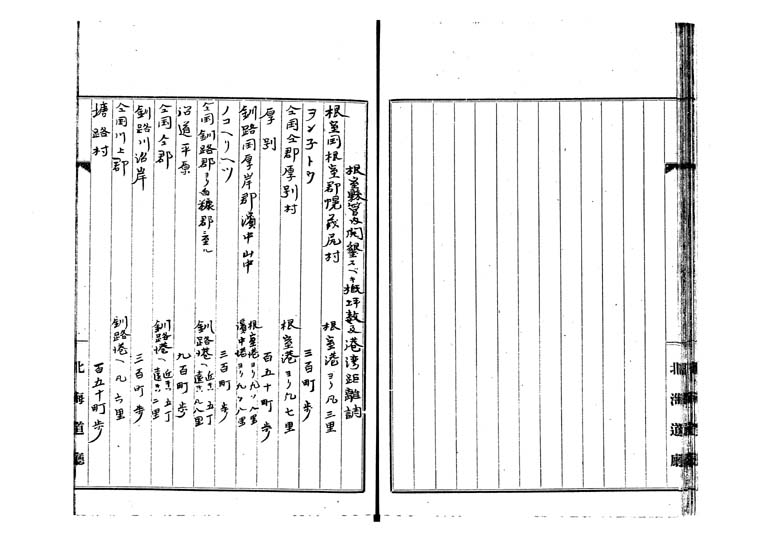 根室縣管内開墾スベキ概坪数及港湾距離調
根室国根室郡幌茂尻村　根室港ヨリ凡三里
ヲン子トウ　三百町歩
仝国仝郡厚別村　根室港ヨリ凡七里
厚別　百五十町歩
釧路国厚岸郡濱中　根室港ヨリ凡
濱中港ヨリ凡八里
ノコヘリヘツ　三百町歩
仝国釧路郡ヨリ白糠郡ニ至ル　釧路港ヘ近キハ五丁
遠キハ八里
沿道平原　九百町歩
仝国仝郡　釧路港ヘ近キハ五丁
遠キハ二里
釧路川沿岸　三百町歩
仝国川上郡　釧路港ヘ凡六里
塘路村　百五十町歩
北海道廳
北海道廳